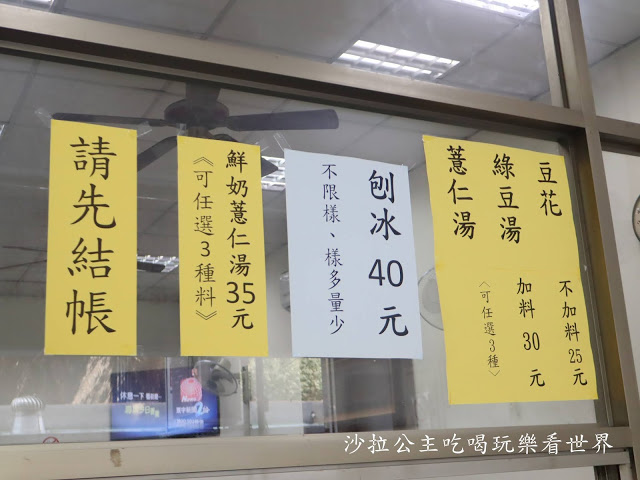 請先結帳
鮮奶薏仁湯35元
《可任選3種料》
刨冰 40 元
不限樣、樣多量少
豆花
綠豆湯
薏仁湯
不加料 25 元
加料 30 元
〈可任選3種〉
休息一下
沙拉公主吃喝玩樂看世界